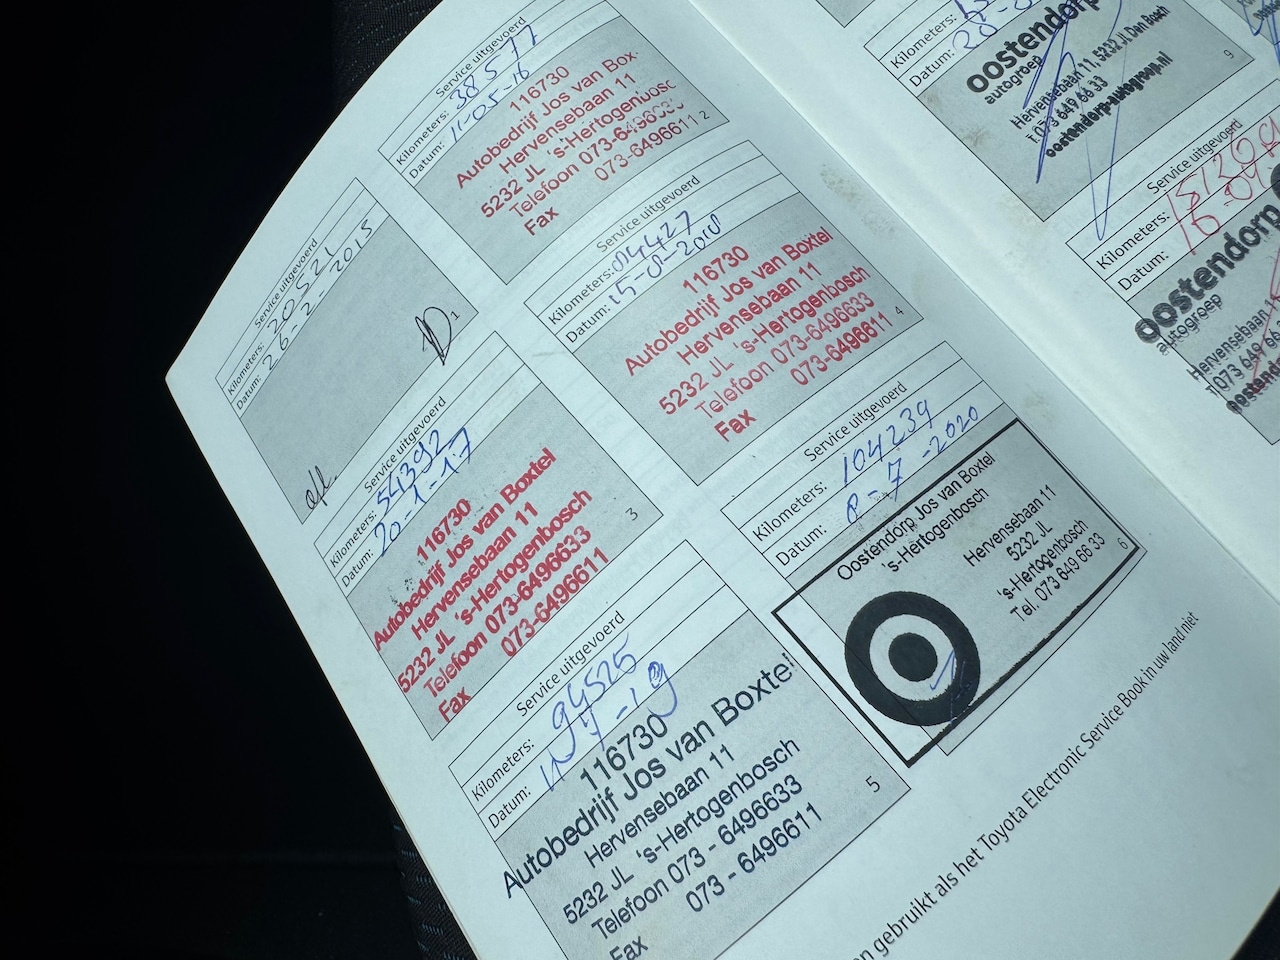 Service uitgevoerd
Kilometers: 20521
Datum: 26-02-2015
1
Service uitgevoerd
Kilometers: 38577
Datum: 11-05-16
116730
Autobedrijf Jos van Box
Hervensebaan 11
5232 JL 's-Hertogenbosc
Telefoon 073-6496633
073-6496611
Fax
2
Service uitgevoerd
Kilometers: 54392
Datum: 20-1-17
116730
Autobedrijf Jos van Boxtel
Hervensebaan 11
5232 JL 's-Hertogenbosch
Telefoon 073-6496633
073-6496611
Fax
3
Service uitgevoerd
Kilometers:
Datum:
116730
Autobedrijf Jos van Boxtel
Hervensebaan 11
5232 JL 's-Hertogenbosch
Telefoon 073-6496633
073-6496611
Fax
4
Service uitgevoerd
Kilometers: 94525
Datum:
116730
Autobedrijf Jos van Boxtel
Hervensebaan 11
5232 JL 's-Hertogenbosch
Telefoon 073 - 6496633
073 - 6496611
Fax
5
Service uitgevoerd
Kilometers: 104239
Datum: 8-7-2020
Oostendorp Jos van Boxtel
's-Hertogenbosch
Hervensebaan 11
5232 JL
's-Hertogenbosch
Tel. 073 649 66 33
6
en gebruikt als het Toyota Electronic Service Book in uw land niet
Kilometers:
Datum:
oostendorp
autogroep
Hervensebaan 11, 5232 JL Den Bosch
T 073 649 66 33
oostendorp-autogroep.nl
9
Service uitgevoerd
Kilometers:
Datum:
oostendorp
autogroep
Hervensebaan
T 073 649 66
oostend